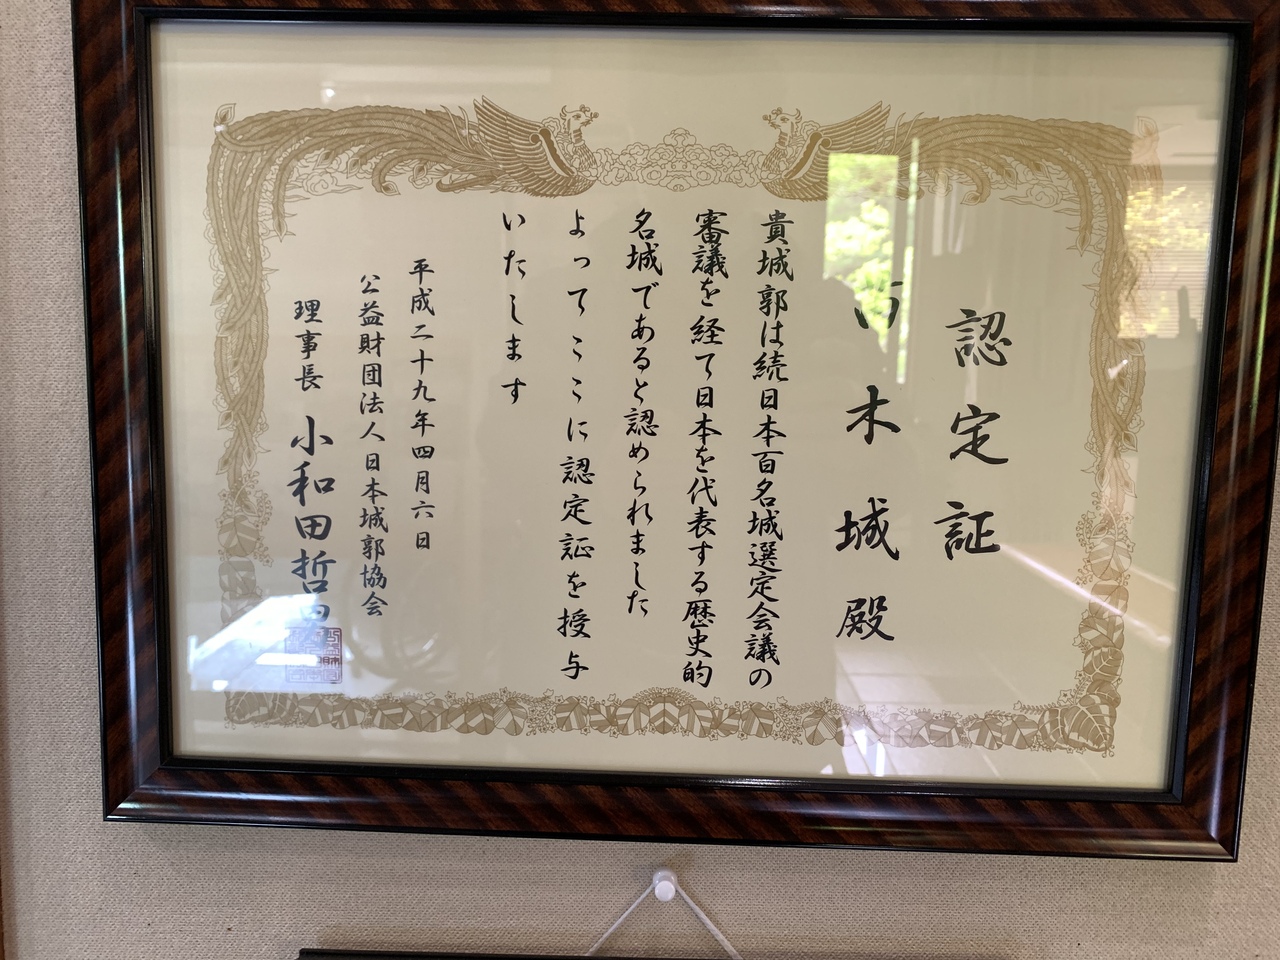 認定証
木城殿
貴城郭は続日本百名城選定会議の
審議を経て日本を代表する歴史的
名城であると認められました
よってここに認定証を授与
いたします
平成二十九年四月六日
公益財団法人日本城郭協会
理事長 小和田哲